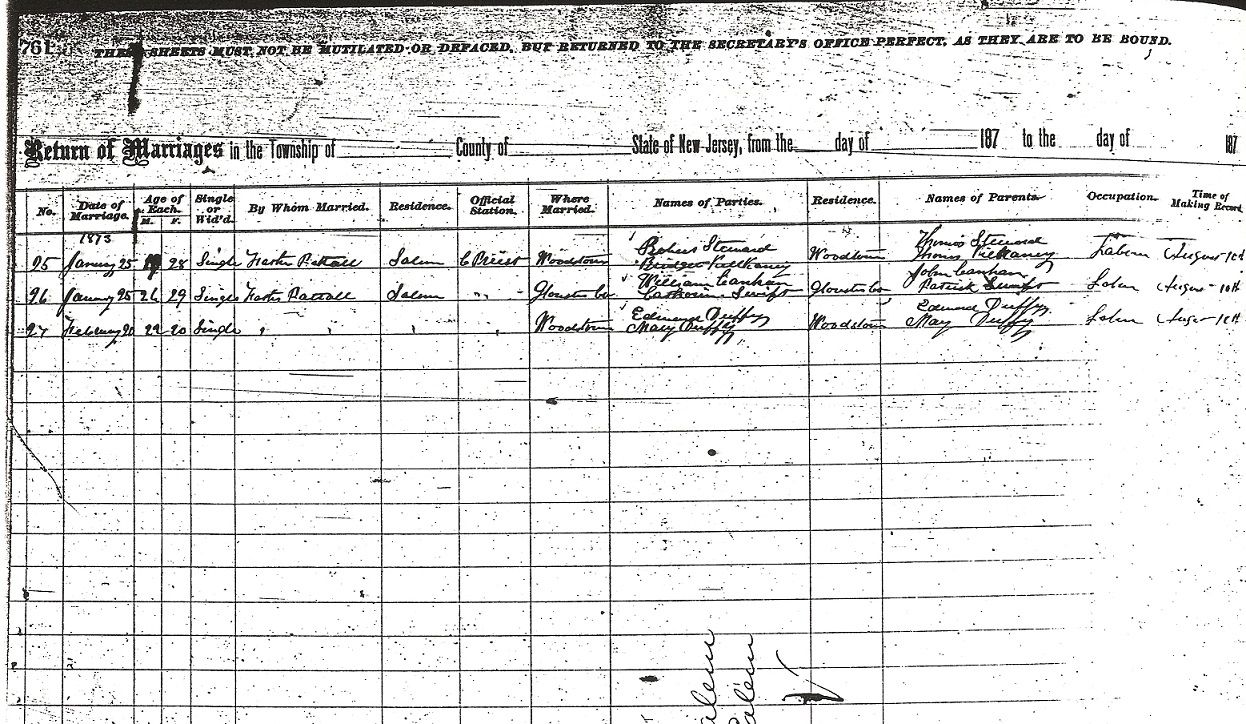 761
THESE SHEETS MUST NOT BE MUTILATED OR DEFACED, BUT RETURNED TO THE SECRETARY'S OFFICE PERFECT, AS THEY ARE TO BE BOUND.
Return of Marriages in the Township of County of State of New Jersey, from the day of 187 to the day of 187
No. Date of Marriage. Age of Each. M. F. Single or Wid'd. By Whom Married. Residence. Official Station. Where Married. Names of Parties. Residence. Names of Parents. Occupation. Time of Making Record
1873
Steward Thomas Steward
95 January 25 28 Single Salem C Priest Woodstown Woodstown Thomas August 10th
William John
96 January 25 26 29 Single Salem " " Swift Patrick Swift 10th
Edmund Duffy Edmund Duffy
97 February 20 22 20 Single " " " Woodstown Mary Duffy Woodstown Mary Duffy 10th
Salem
Salem